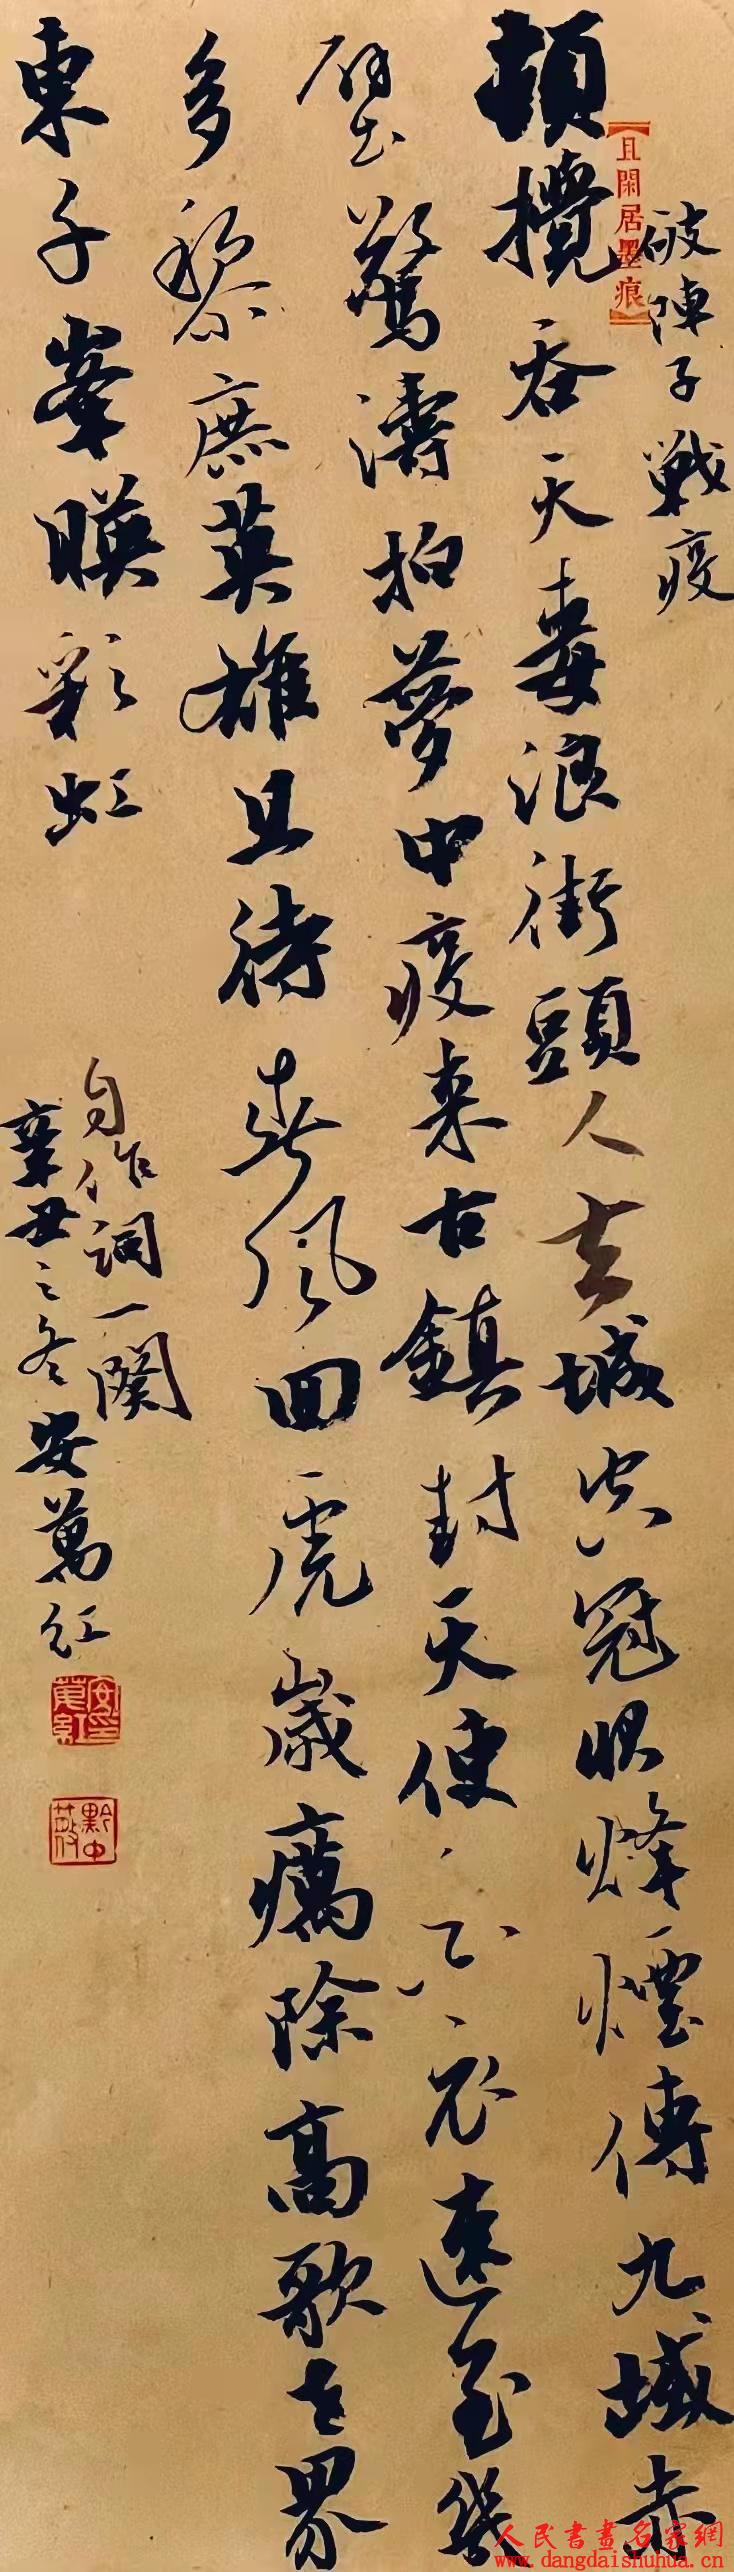 破陣子戰疫
【且閑居墨痕】
頓攪吞天毒浪街頭人去城空冠狀烽煙傳九域赤
壁驚濤拍夢中疫来古鎮封天使衣速至幾
多黎庶英雄且待春風回虎歲癘除高歌世界
東千峯暎彩虹
自作詞一闋
辛丑之冬安萬紅
安萬紅印
人民書畫名家網
www.dangdaishuhua.cn